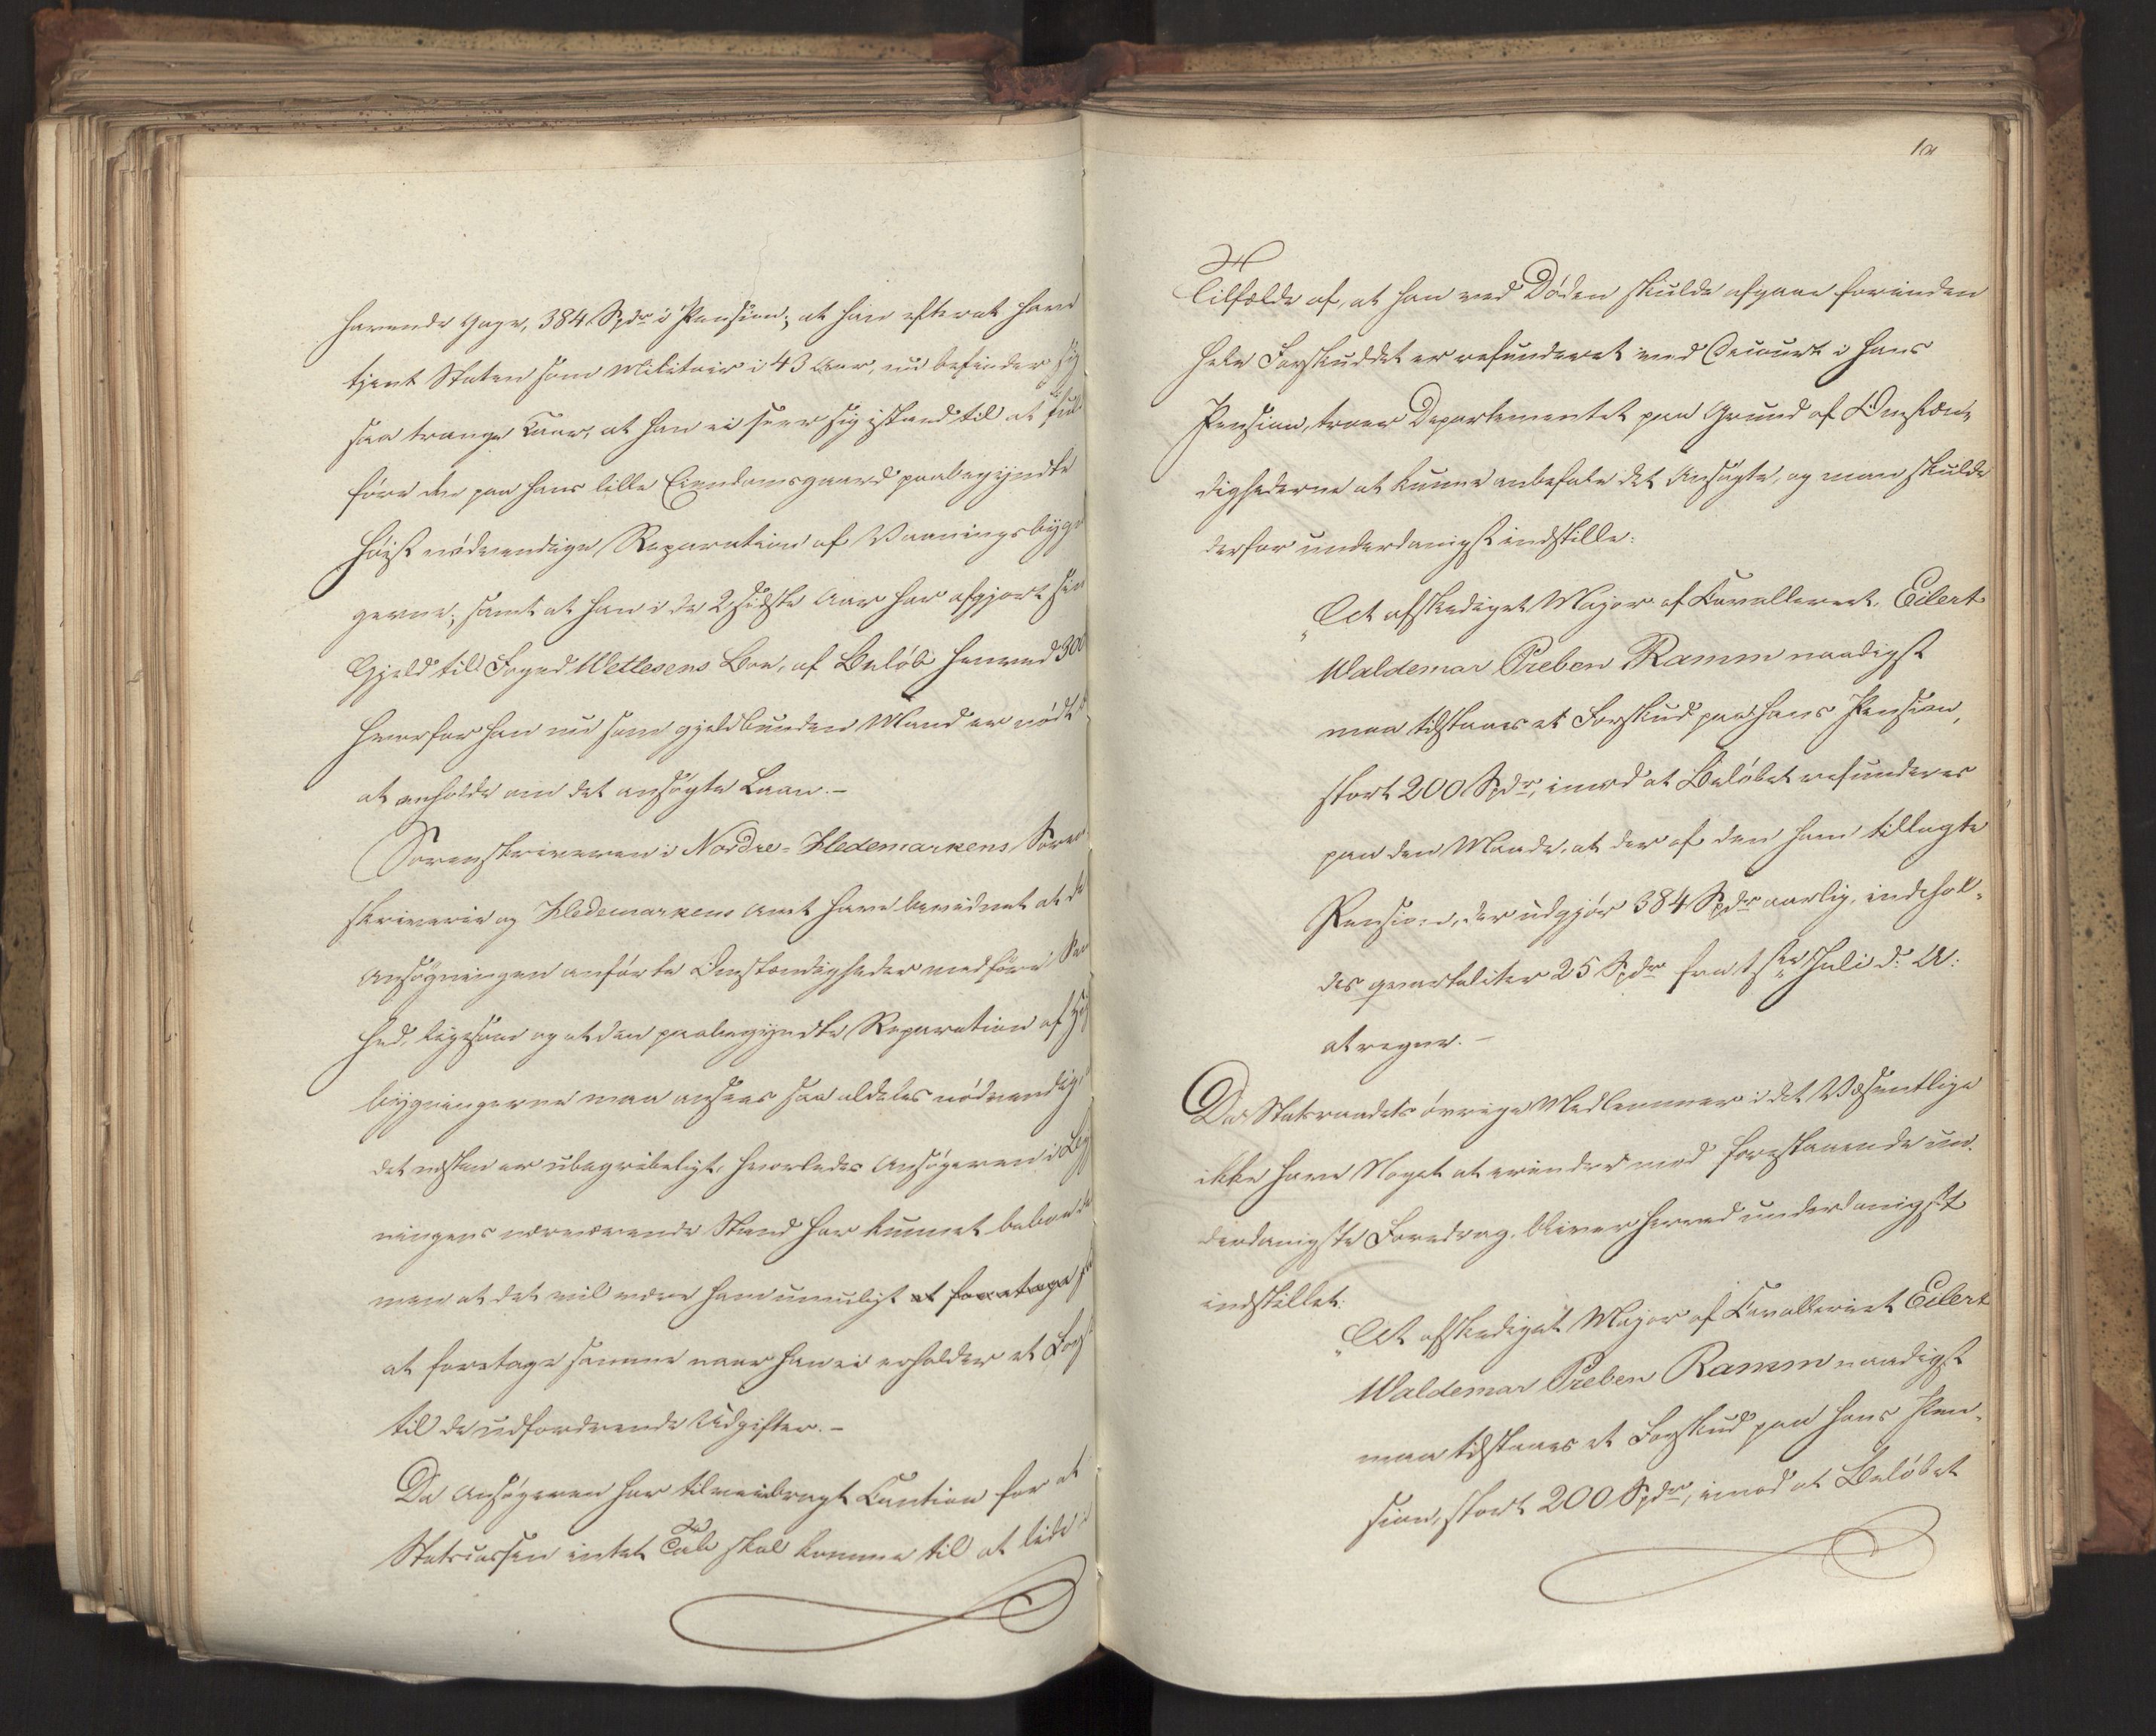 havende Gage, 384 Spdr i Pension; at han efterat have
tjent Staten som Militair i 43 Aar, nu befinder sig
saa trange Kaar, at han ei seer sig istand til at fuld
føre den paa hans lille Eiendomsgaard paabegyndte
høist nødvendige Reparation af Vaaningsbyg
gerne; samt at han i de 2 sidste Aar har afgjort sin
Gjeld til Foged Wetlesens Boe, af Beløb henved 300
hvorfor han nu som gjeldbunden Mand er nødt
at anholde om det ansøgte Laan.-
Sorenskriveren i Nordre-Hedemarkens Soren
skriverie og Hedemarkens Amt have bevidnet at de
Ansøgningen anførte Omstændigheder medføre
hed, ligesom og at den paabegyndte Reparation af
bygningerne maa ansees saa aldeles nødvendig,
det næsten er ubegribeligt, hvorledes Ansøgeren i Byg
ningens nærværende Stand har kunnet beboe de
men at det vil være ham umuligt at foretage
at foretage samme naar han ei erholder et Forsk
til de udfordrende Udgifter.-
Da Ansøgeren har tilveiebragt Caution for at
Statscassen intet Tab skal komme til at lide i
Tilfælde af, at han ved Døden skulde afgaae forinden
hele Forskuddet er refunderet ved Decourt i hans
Pension, troer Departementet paa Grund af Omstæn-
dighederne at kunne anbefale det Ansøgte, og man skulde
derfor underdanigst indstille:
"At afskediget Major af Cavalleriet, Eilert
Waldemar Preben Ramm naadigst
maa tilstaaes et Forskud paa hans Pension,
stort 200 Spdr, imod at Beløbet refunderes
paa den Maade, at der af den ham tillagte
Pension, der udgjør 384 Spdr aarlig, indehol-
des qvartaliter 25 Spdr fra 1ste Juli d: A:
at regne.-
Da Statsraadets øvrige Medlemmer i det Væsentlige
ikke have Noget at erindre mod forestaaende un-
derdanigste Foredrag, bliver herved underdanigst
indstillet:
"At afskediget Major af Cavalleriet Eilert
Waldemar Preben Ramm naadigst
maa tilstaaes et Forskud paa hans Pen-
sion, stort 200 Spdr, imod at Beløbet